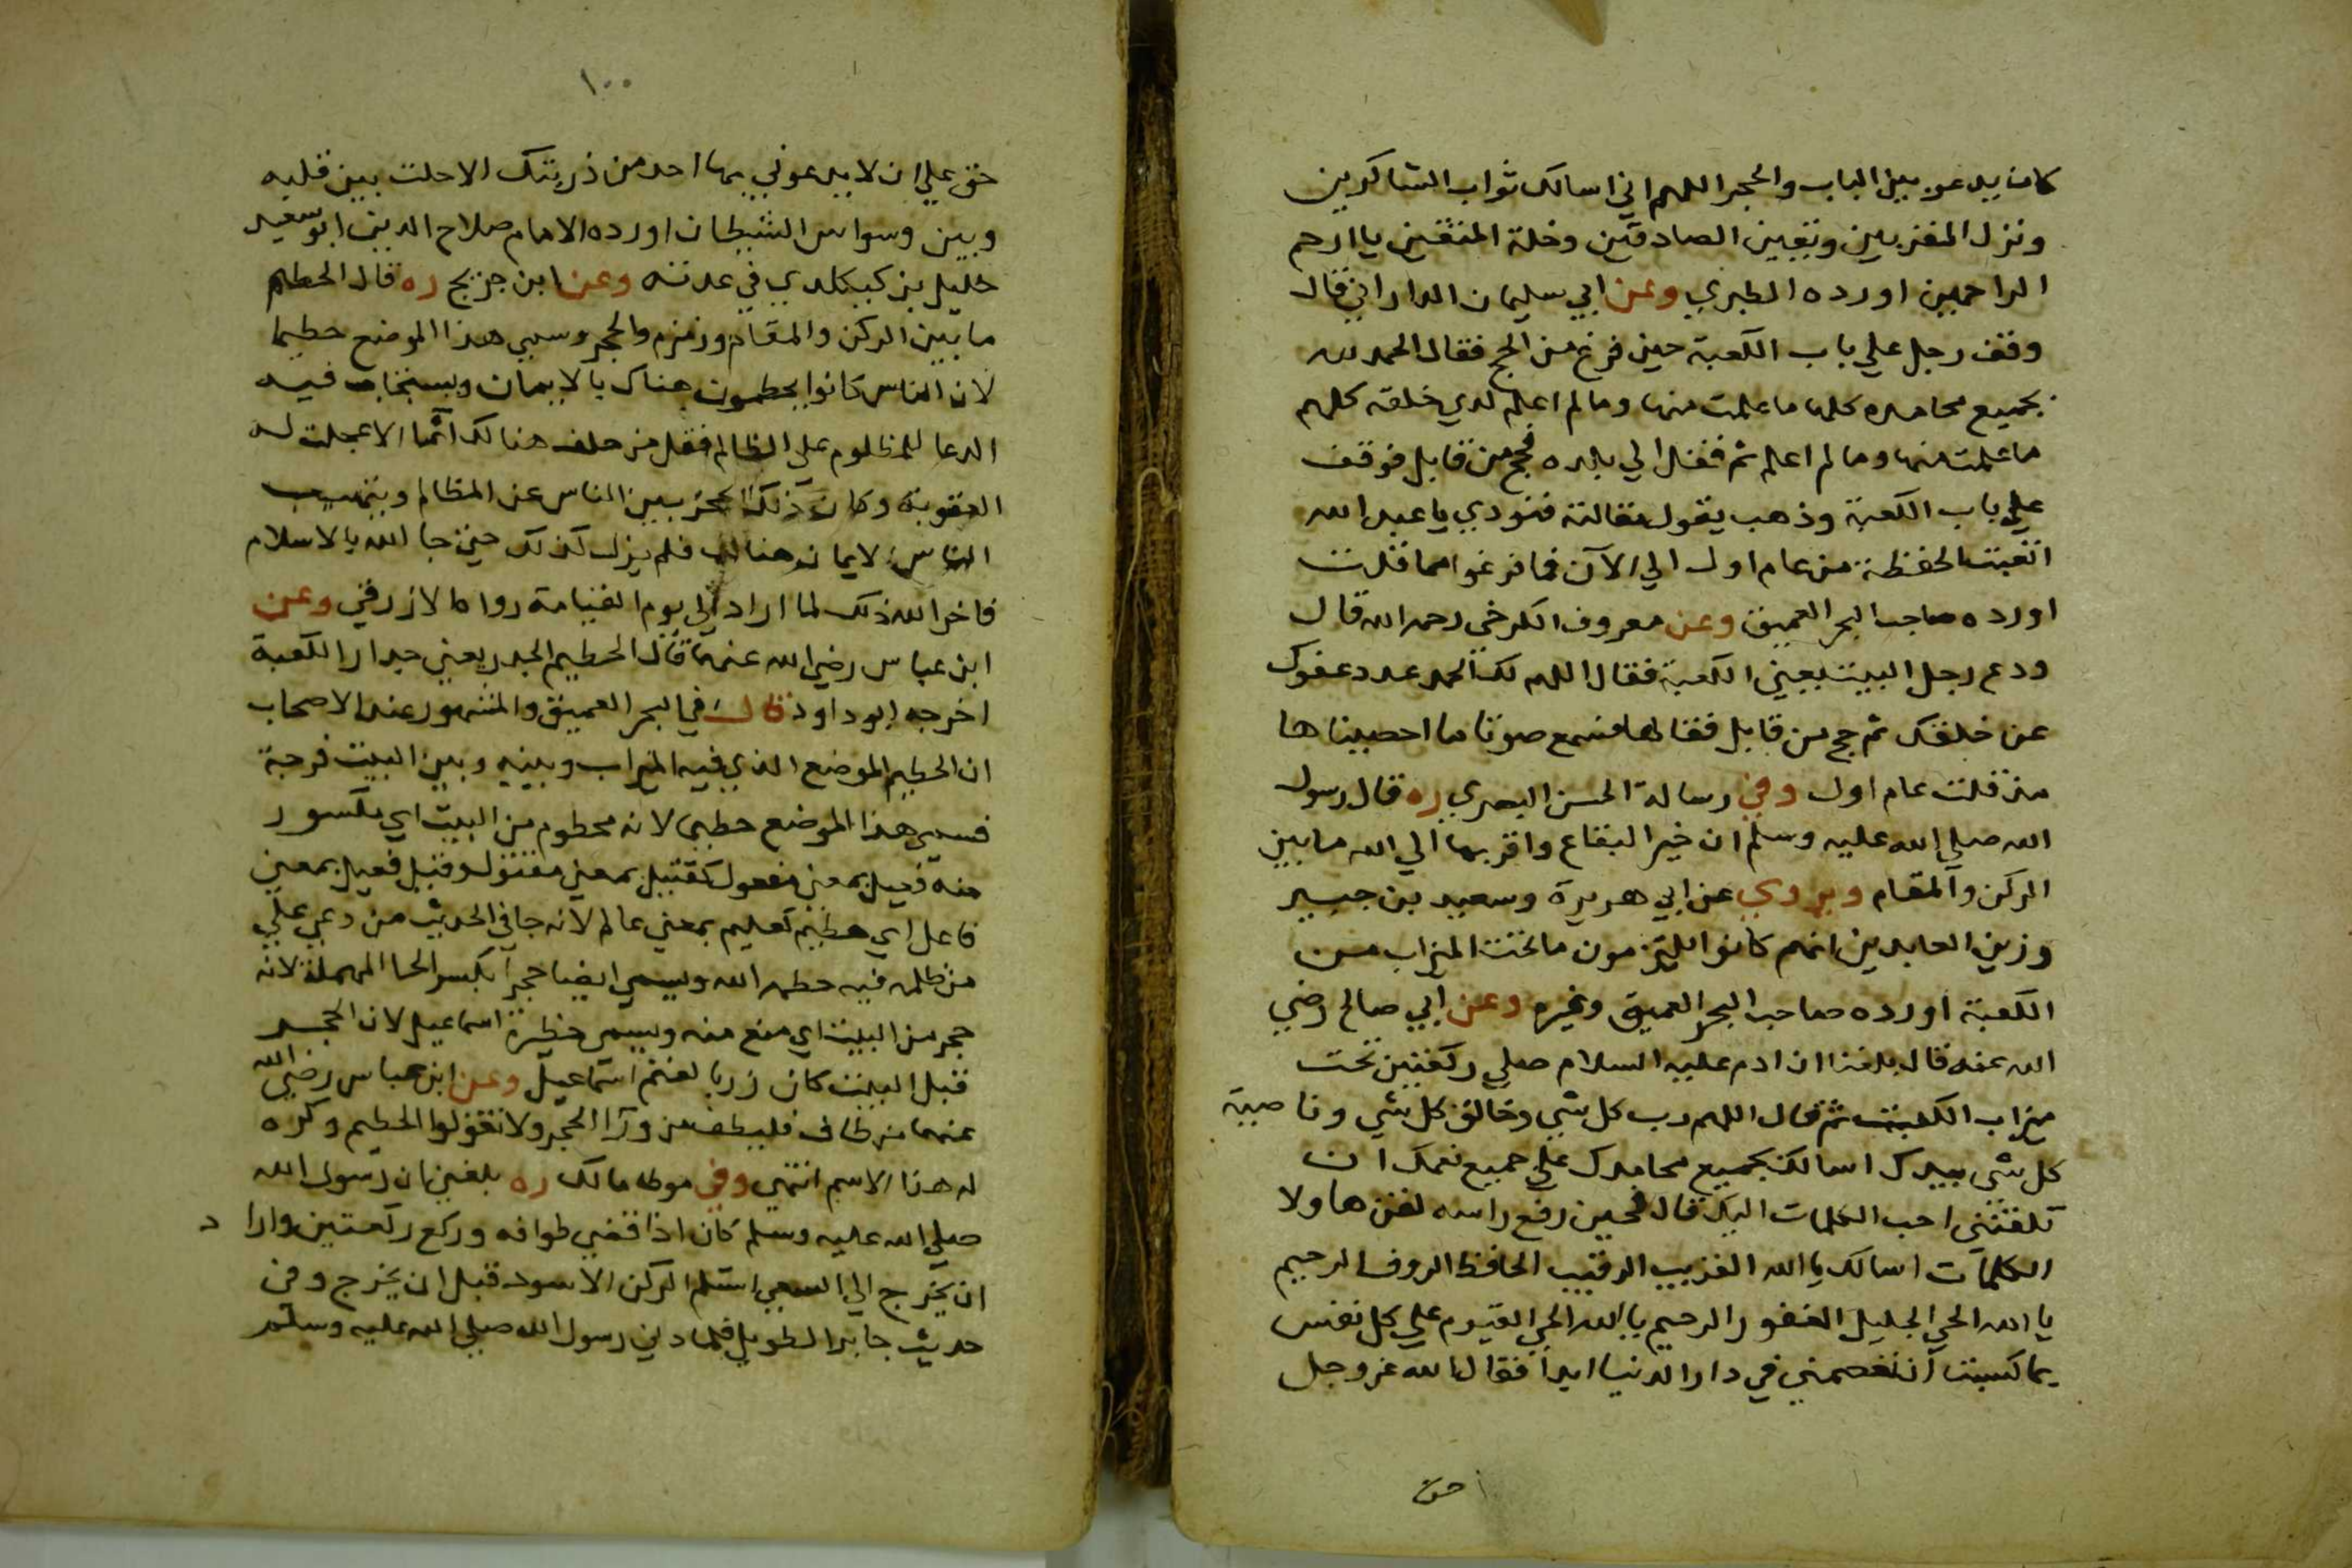 كان يدعو بين الباب والحجر اللهم اني اسالك ثواب الشاكرين
ونزل المقربين ويقين الصادقين وخلة المتقين يا ارحم
الراحمين اورده الطبري وعن ابي سليمان الداراني قال
وقف رجل علي باب الكعبة حين فرغ من الحج فقال الحمد لله
بجميع محامده كلها ما علمت منها وما لم اعلم لدي خلقه كلهم
ما علمت منهم وما لم اعلم ثم قفل الي بلده فحج من قابل فوقف
علي باب الكعبة وذهب يقول مقالته فنودي يا عبد الله
اتعبت الحفظة من عام اول الي الآن فما فرغوا مما قلت
اورده صاحب البحر العميق وعن معروف الكرخي رحمه الله قال
ودع رجل البيت يعني الكعبة فقال اللهم لك الحمد عدد عفوك
عن خلقك ثم حج من قابل فقالها فسمع صوتا ما احصيناها
منذ قلت عام اول وفي رسالة الحسن البصري ره قال رسول
الله صلي الله عليه وسلم ان خير البقاع واقربها الي الله ما بين
الركن والمقام ويروي عن ابي هريرة وسعيد بن جبير
وزين العابدين انهم كانوا يلتزمون ما تحت الميزاب من
الكعبة اورده صاحب البحر العميق وغيره وعن ابي صالح رضي
الله عنه قال بلغنا ان ادم عليه السلام صلي ركعتين تحت
ميزاب الكعبة ثم قال اللهم رب كل شي وخالق كل شي وناصية
كل شي بيدك اسالك بجميع محامدك علي جميع نعمك ان
تلقنني احب الكلمات اليك قال فحين رفع راسه لقن هاولا
الكلمات اسالك يا الله القريب الرقيب الحافظ الروف الرحيم
يا الله الحي الجليل الغفور الرحيم يا الله الحي القيوم علي كل نفس
بما كسبت ان تعصمني في دار الدنيا ابدا فقال الله عز وجل
حق
١٠٠
حق علي ان لا يدعوني بها احد من ذريتك الا حلت بين قلبه
وبين وسواس الشيطان اورده الامام صلاح الدين ابو سعيد
خليل بن كيكلدي في عدته وعن ابن جريج ره قال الحطيم
ما بين الركن والمقام وزمزم والحجر وسمي هذا الموضع حطيما
لان الناس كانوا يحطمون هناك بالايمان ويستجاب فيه
الدعا للمظلوم علي الظالم فقل من حلف هنالك آثما الا عجلت له
العقوبة وكان ذلك يحجز بين الناس عن المظالم ويتهيب
الناس الايمان هنالك فلم يزل كذلك حتي جا الله بالاسلام
فاخر الله ذلك لما اراد الي يوم القيامة رواه الازرقي وعن
ابن عباس رضي الله عنهما قال الحطيم الجدر يعني جدار الكعبة
اخرجه ابو داود قال في البحر العميق والمشهور عند الاصحاب
ان الحطيم الموضع الذي فيه الميزاب وبينه وبين البيت فرجة
فسمي هذا الموضع حطيما لانه محطوم من البيت اي مكسور
منه فعيل بمعني مفعول كقتيل بمعني مقتول وقيل فعيل بمعني
فاعل اي حطيم كعليم بمعني عالم لانه جا في الحديث من دعي علي
من ظلمه فيه حطمه الله ويسمي ايضا حجرا بكسر الحا المهملة لانه
حجر من البيت اي منع منه ويسمي حظيرة اسماعيل لان الحجر
قبل البيت كان زربا لغنم اسماعيل وعن ابن عباس رضي الله
عنهما من طاف فليطف من ورآ الحجر ولا تقولوا الحطيم وكره
له هذا الاسم انتهي وفي موطا مالك ره بلغني ان رسول الله
صلي الله عليه وسلم كان اذا قضي طوافه وركع ركعتين واراد
ان يخرج الي السعي استلم الركن الاسود قبل ان يخرج وفي
حديث جابر الطويل رسول الله صلي الله عليه وسلم